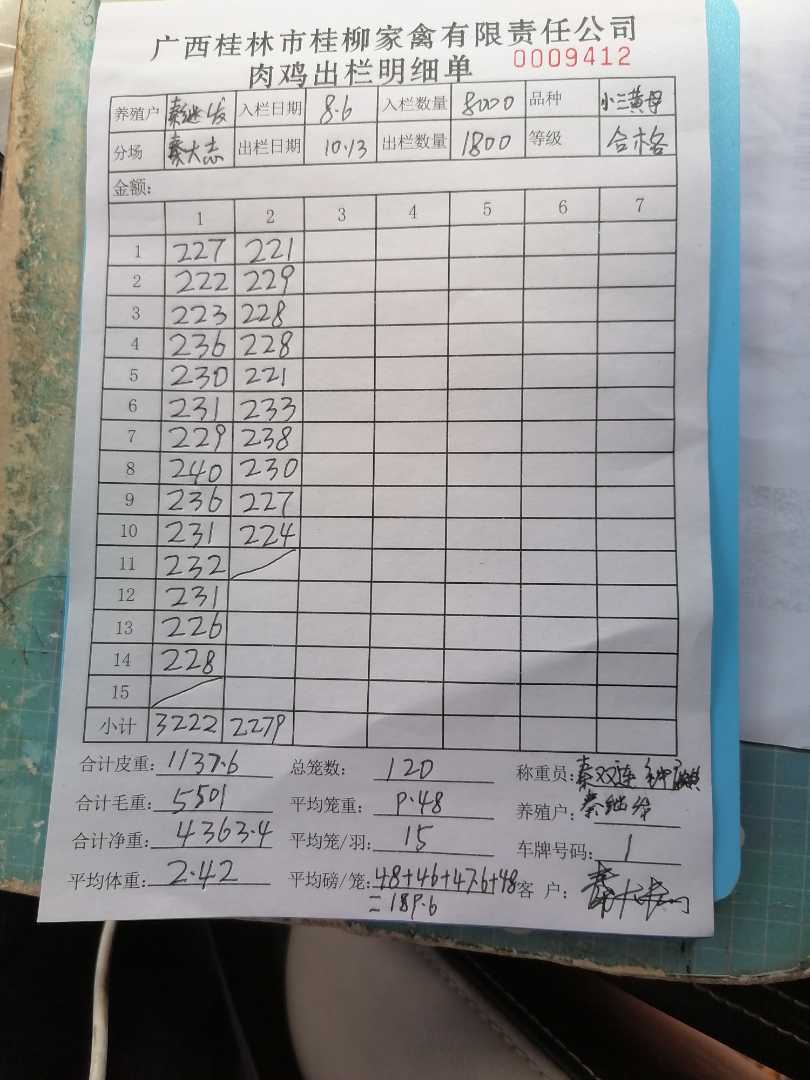 广西桂林市桂柳家禽有限责任公司
肉鸡出栏明细单 0009412
养殖户 秦继发 入栏日期 8.6 入栏数量 8000 品种 小三黄母
分场 秦大志 出栏日期 10.13 出栏数量 1800 等级 合格
金额:
1 2 3 4 5 6 7
1 227 221
2 222 229
3 223 228
4 236 228
5 230 221
6 231 233
7 229 238
8 240 230
9 236 227
10 231 224
11 232
12 231
13 226
14 228
15
小计 3222 2279
合计皮重: 1137.6 总笼数: 120 称重员: 秦双连
合计毛重: 5501 平均笼重: 9.48 养殖户: 秦继发
合计净重: 4363.4 平均笼/羽: 15 车牌号码: 1
平均体重: 2.42 平均磅/笼: 48+46+47.6+48 客 户:
=189.6